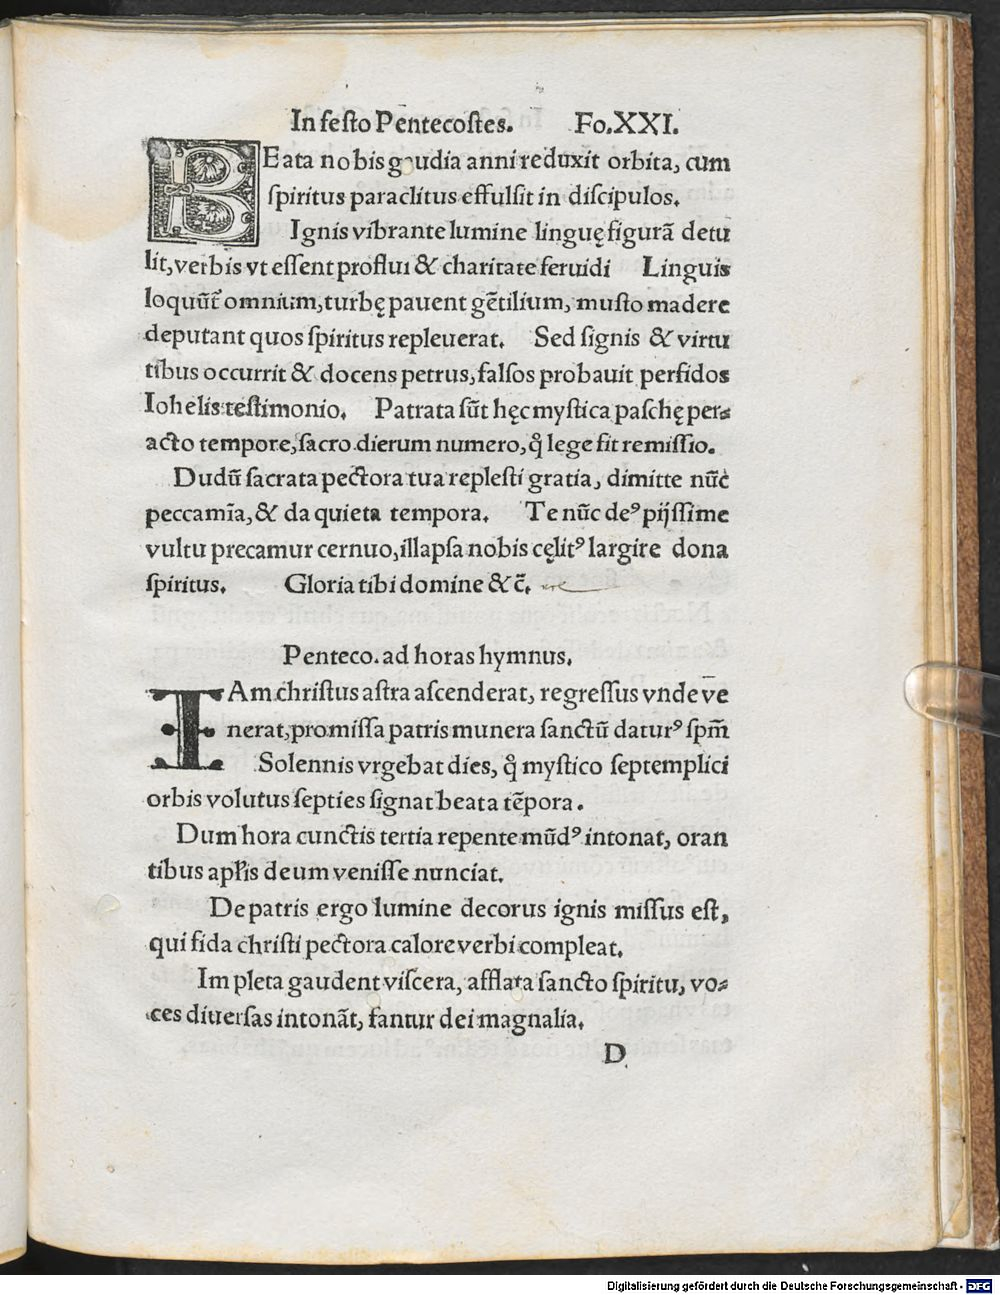 In festo Pentecostes. Fo.XXI.
BEata nobis gaudia anni reduxit orbita, cum
spiritus paraclitus effulsit in discipulos.
Ignis vibrante lumine linguę figurā detu
lit, verbis vt essent proflui & charitate feruidi Linguis
loquūt᷑ omnium, turbę pauent gētilium, musto madere
deputant quos spiritus repleuerat. Sed signis & virtu
tibus occurrit & docens petrus, falsos probauit perfidos
Iohelis testimonio. Patrata sūt hęc mystica paschę per⸗
acto tempore, sacro dierum numero, q̊ lege fit remissio.
Dudū sacrata pectora tua replesti gratia, dimitte nūc
peccamīa, & da quieta tempora. Te nūc deꝰ pijssime
vultu precamur cernuo, illapsa nobis cęlitꝰ largire dona
spiritus. Gloria tibi domine & c̄.
Penteco. ad horas hymnus.
IAm christus astra ascenderat, regressus vnde ve̅
nerat, promissa patris munera sanctū daturꝰ spm̅
Solennis vrgebat dies, q̊ mystico septemplici
orbis volutus septies signat beata tēpora.
Dum hora cunctis tertia repente mūdꝰ intonat, oran
tibus apl̅is deum venisse nunciat.
De patris ergo lumine decorus ignis missus est,
qui fida christi pectora calore verbi compleat.
Impleta gaudent viscera, afflata sancto spiritu, vo⸗
ces diuersas intonāt, fantur dei magnalia.
D
Digitalisierung gefördert durch die Deutsche Forschungsgemeinschaft - DFG